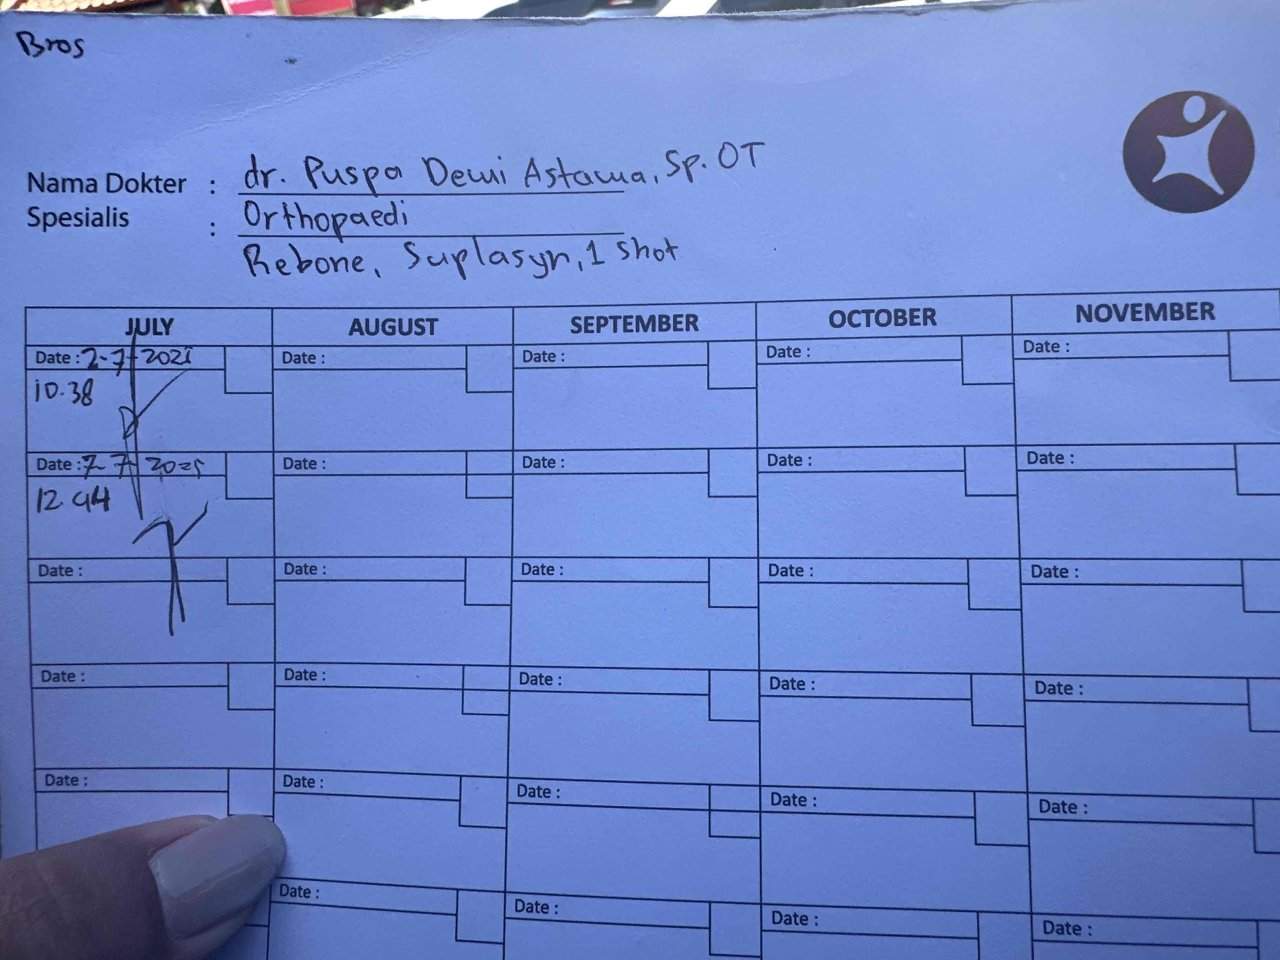 Bros
Nama Dokter : dr. Puspa Dewi Astawa, Sp. OT
Spesialis : Orthopaedi
Rebone, Suplasyn, 1 shot
JULY AUGUST SEPTEMBER OCTOBER NOVEMBER
Date : 2-7-2025 Date : Date : Date : Date :
10.38
Date : 7-7 2025 Date : Date : Date : Date :
12.44
Date : Date : Date : Date : Date :
Date : Date : Date : Date : Date :
Date : Date : Date : Date : Date :
Date : Date : Date : Date :